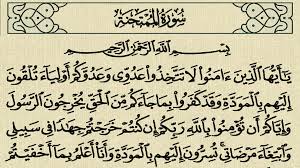 سُورَةُ الْمُمْتَحِنَةِ
بِسْمِ اللَّهِ الرَّحْمَٰنِ الرَّحِيمِ
يَٰٓأَيُّهَا الَّذِينَ ءَامَنُوا۟ لَا تَتَّخِذُوا۟ عَدُوِّى وَعَدُوَّكُمْ أَوْلِيَآءَ تُلْقُونَ
إِلَيْهِم بِالْمَوَدَّةِ وَقَدْ كَفَرُوا۟ بِمَا جَآءَكُم مِّنَ الْحَقِّ يُخْرِجُونَ الرَّسُولَ
وَإِيَّاكُمْ أَن تُؤْمِنُوا۟ بِاللَّهِ رَبِّكُمْ إِن كُنتُمْ خَرَجْتُمْ جِهَٰدًا فِى سَبِيلِى
وَابْتِغَآءَ مَرْضَاتِى تُسِرُّونَ إِلَيْهِم بِالْمَوَدَّةِ وَأَنَا۠ أَعْلَمُ بِمَآ أَخْفَيْتُمْ